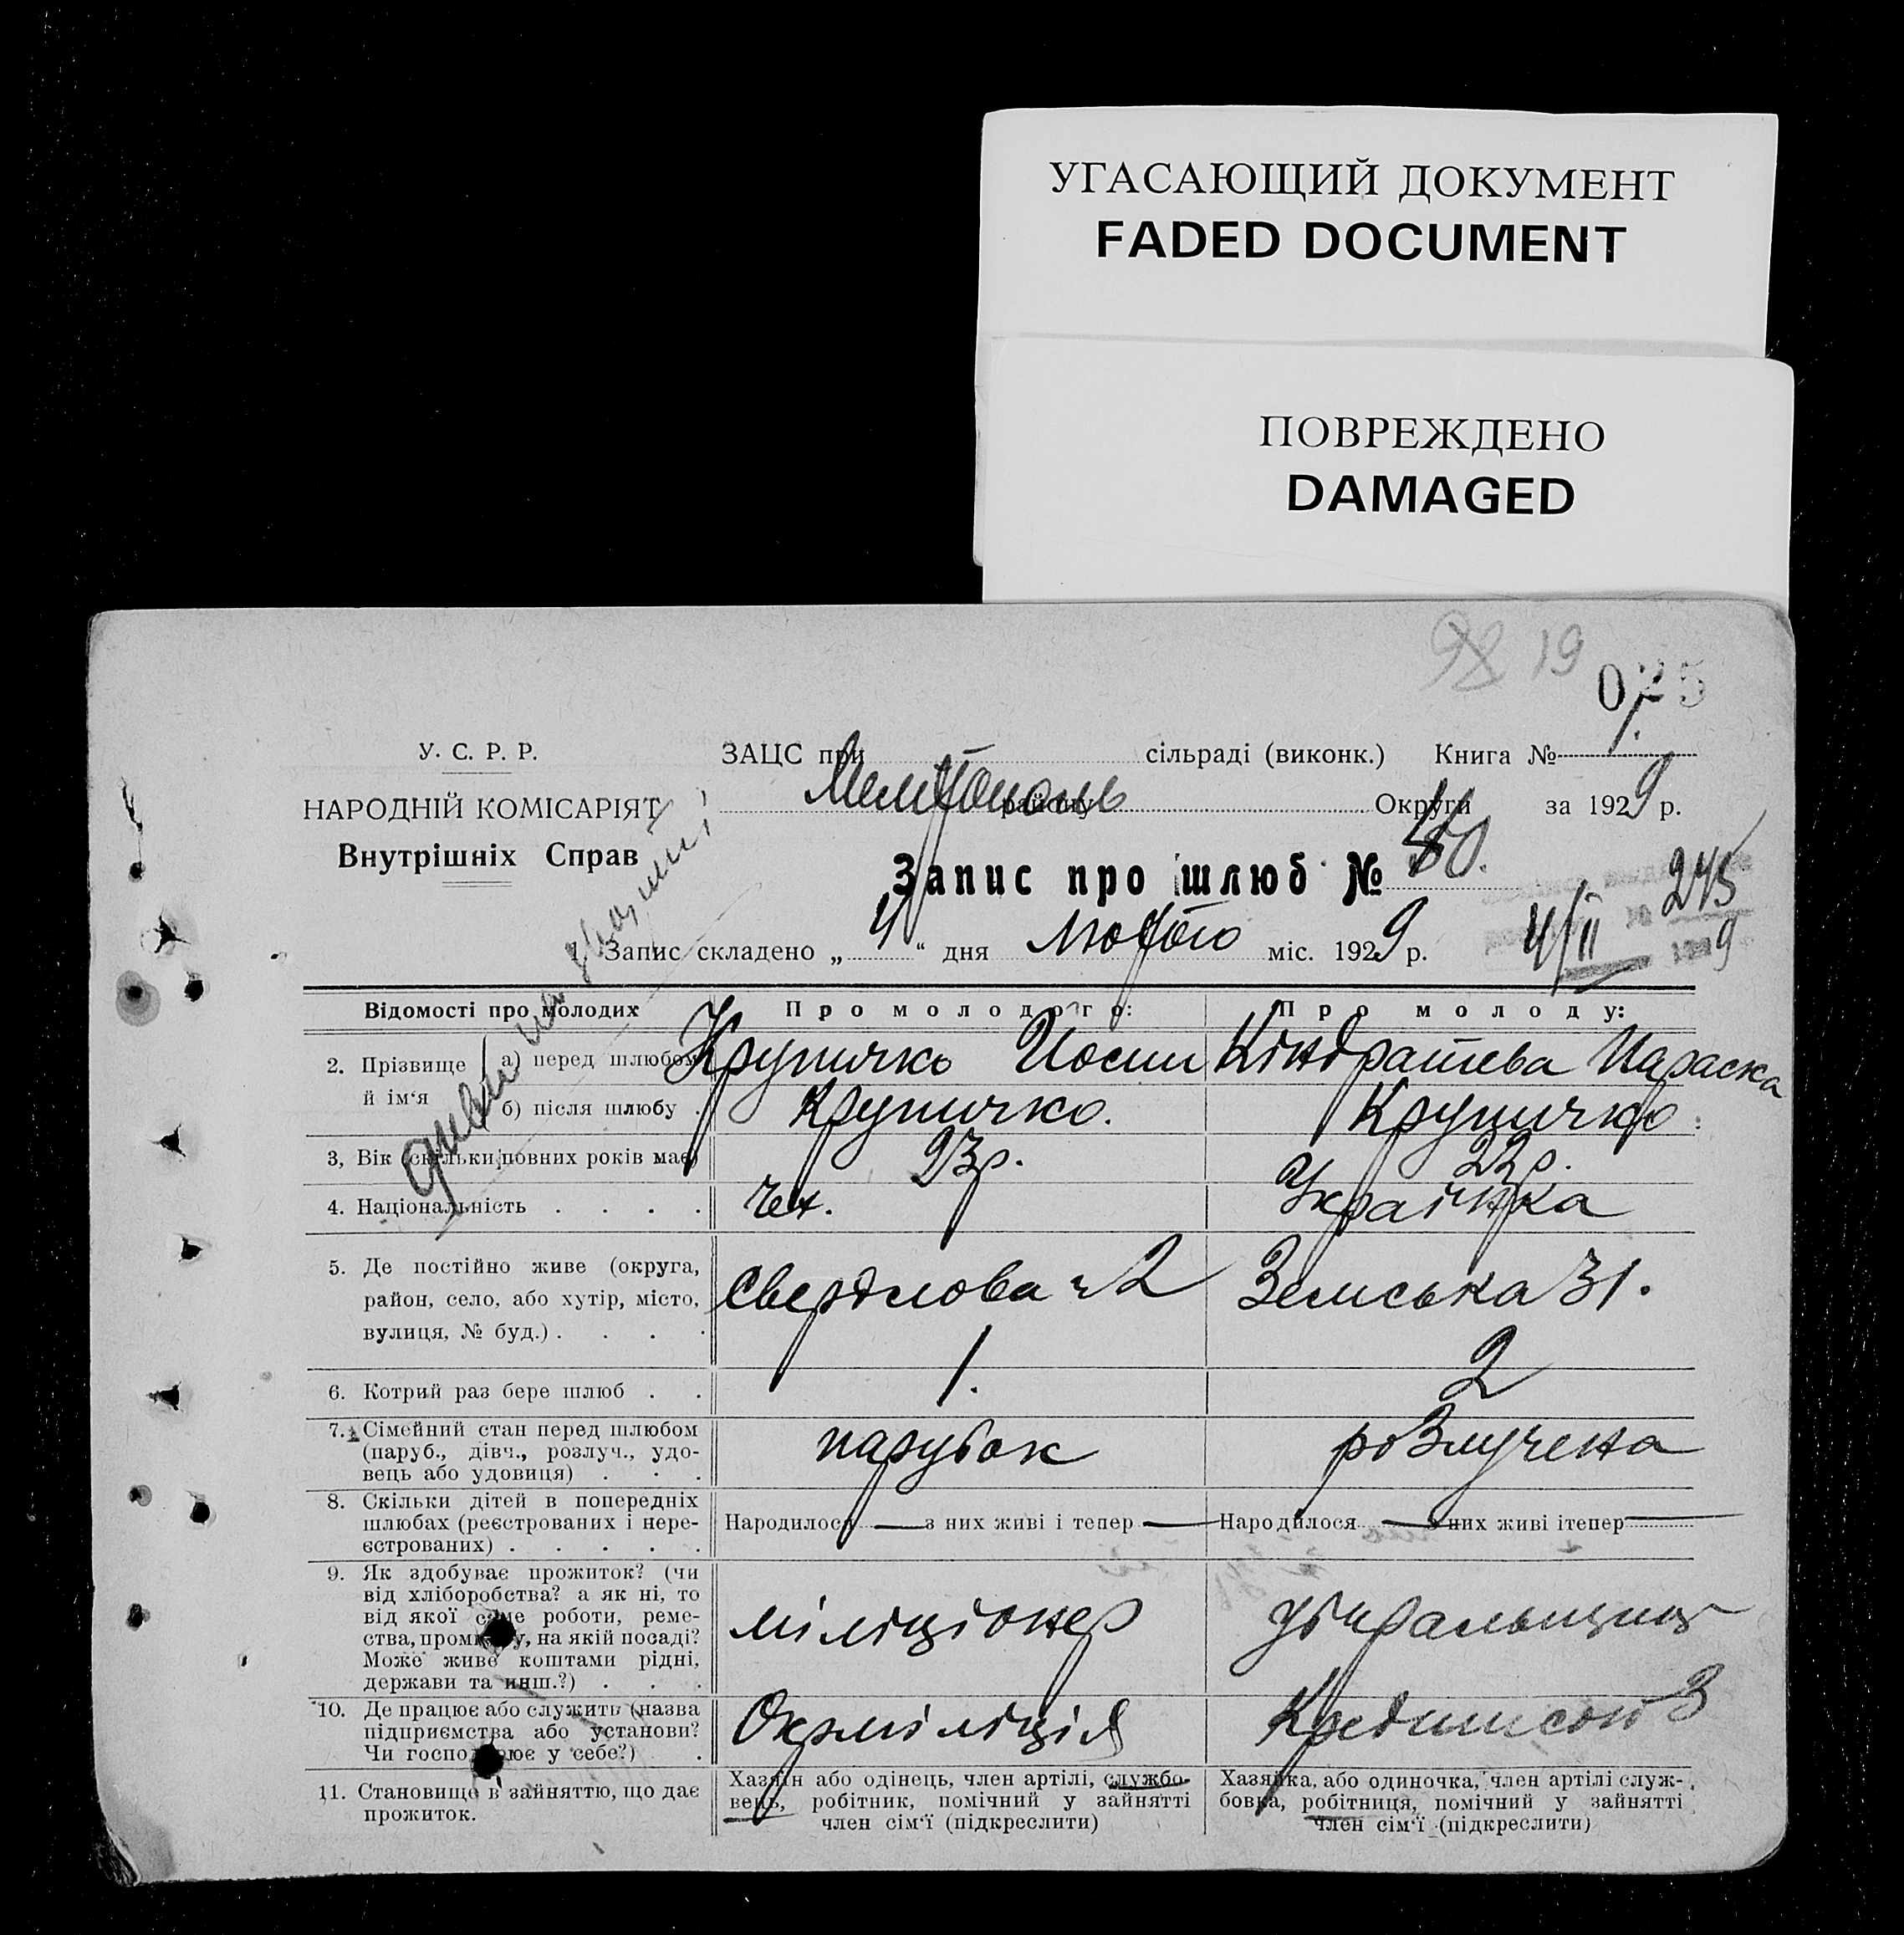 УГАСАЮЩИЙ ДОКУМЕНТ
FADED DOCUMENT
ПОВРЕЖДЕНО
DAMAGED
98 19
025
У. С. Р. Р.
НАРОДНІЙ КОМІСАРІЯТ
Внутрішніх Справ
ЗАЦС при сільраді (виконк.) Книга № 1.
Мелітополь району Округи за 1929 р.
Запис про шлюб №
245
Запис складено „4“ дня Лютого міс. 1929 р.
4/II 9
Відомості про молодих Про молодого: Про молоду:
2. Прізвище й ім‘я
а) перед шлюбом Крупичко Йосип Кіндратєва Параска
б) після шлюбу . Крупичко. Крупичко
3, Вік (скільки повних років має) 23р. 22р.
4. Національність . . . . Чех. Українка
5. Де постійно живе (округа,
район, село, або хутір, місто,
вулиця, № буд.) . . . .
Свердлова ч 2 Земська 31.
6. Котрий раз бере шлюб . . 1. 2
7. Сімейний стан перед шлюбом
(паруб., дівч., розлуч., удо-
вець або удовиця) . . .
парубок розлучена
8. Скільки дітей в попередніх
шлюбах (реєстрованих і нере-
єстрованих) . . . . .
Народилося — з них живі і тепер — Народилося — з них живі ітепер —
9. Як здобуває прожиток? (чи
від хліборобства? а як ні, то
від якої саме роботи, реме-
ства, промислу, на якій посаді?
Може живе коштами рідні,
держави та инш.?) . . .
міліціонер
10. Де працює або служить (назва
підприємства або установи?
Чи господарює у себе?) .
Окрміліція
11. Становище в зайняттю, що дає
прожиток.
Хазяїн або одінець, член артілі, службо-
вець, робітник, помічний у зайнятті
член сім‘ї (підкреслити)
Хазяйка, або одиночка, член артілі служ-
бовка, робітниця, помічний у зайнятті
член сім‘ї (підкреслити)